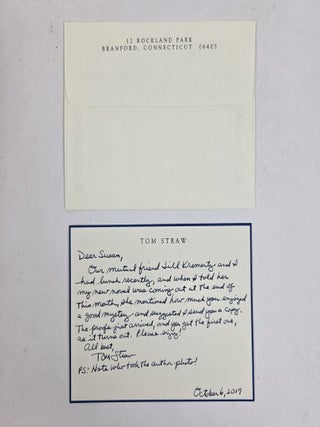 52 ROCKLAND PARK
BRANFORD, CONNECTICUT 06405
TOM STRAW
Dear Susan,
Our mutual friend Jill Krementz and I
had lunch recently, and when I told her
my new novel was coming out at the end of
this month, she mentioned how much you enjoyed
a good mystery and suggested I send you a copy.
The proofs just arrived, and you get the first one,
as it turns out. Please enjoy!
All best,
Tom Straw
PS: Note who took the author photo!
October 6, 2017